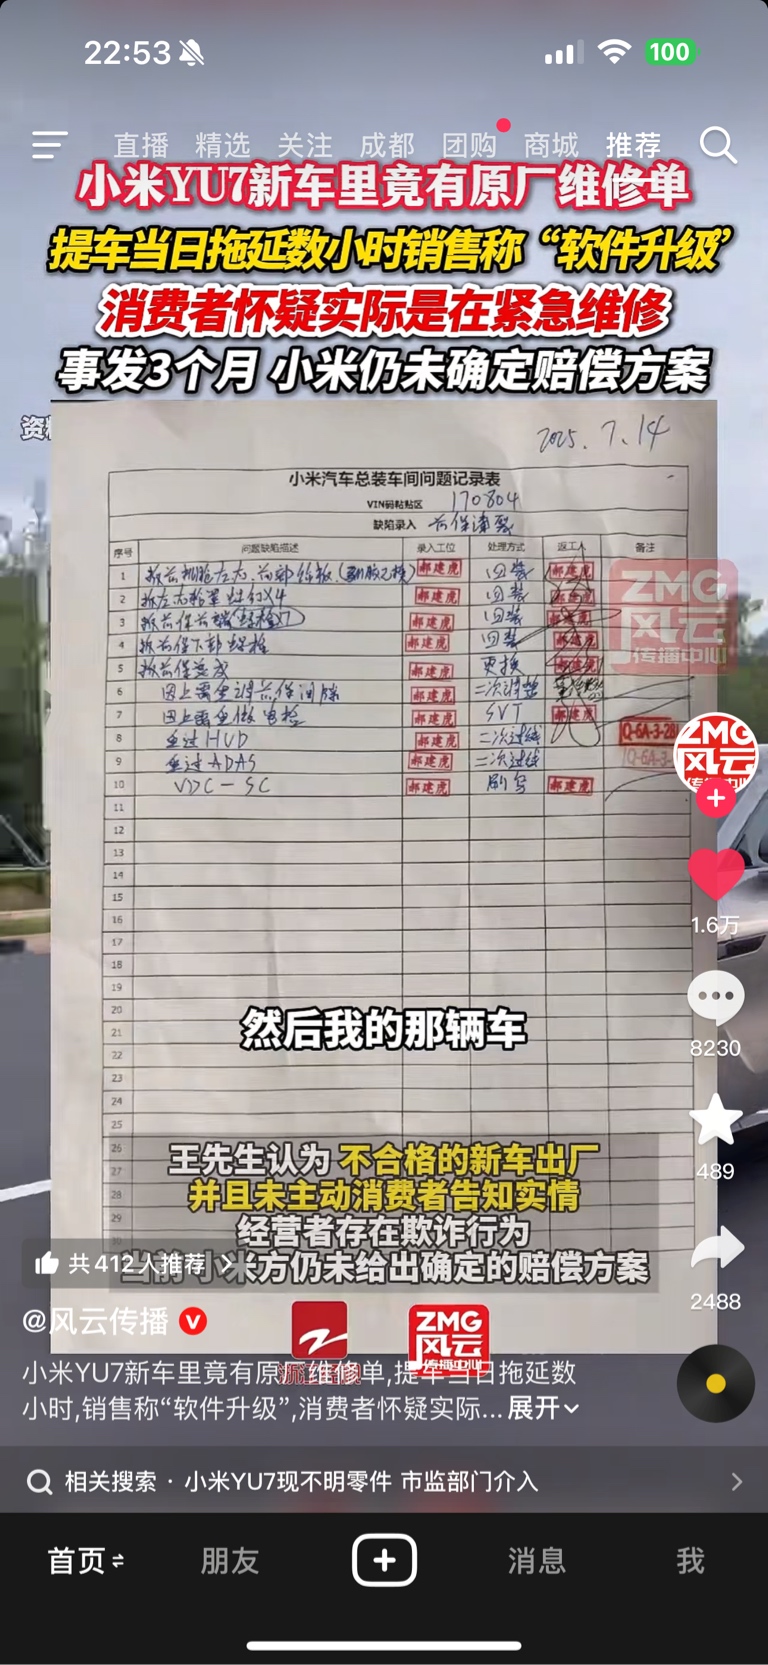 22:53
100
直播 精选 关注 成都 团购 商城 推荐
小米YU7新车里竟有原厂维修单
提车当日拖延数小时销售称“软件升级”
消费者怀疑实际是在紧急维修
事发3个月 小米仍未确定赔偿方案
2025.7.14
小米汽车总装车间问题记录表
VIN码粘贴区 170804
缺陷录入 前保漆裂
序号 问题缺陷描述 录入工位 处理方式 返工人 备注
1 郝建虎 回装 郝建虎
2 郝建虎 回装
3 郝建虎 回装 郝建虎
4 拆前保下部螺栓 郝建虎 回装 郝建虎
5 拆前保总成 郝建虎 更换 郝建虎
6 因上需重调前保间隙 郝建虎 二次调整
7 因上需重做电检 郝建虎 SVT 郝建虎
8 重过HUD 郝建虎 二次过线
9 重过ADAS 郝建虎 二次过线
10 VDC-SC 郝建虎 刷写 郝建虎
11
12
13
14
15
16
17
18
19
20
21
22
23
24
25
26
27
28
29
ZMG
风云
传播中心
ZMG
风云
1.6万
8230
489
2488
然后我的那辆车
王先生认为 不合格的新车出厂
并且未主动消费者告知实情
经营者存在欺诈行为
当前小米方仍未给出确定的赔偿方案
共412人推荐 >
@风云传播
ZMG
风云
传播中心
小米YU7新车里竟有原厂维修单,提车当日拖延数
小时,销售称“软件升级”,消费者怀疑实际... 展开
相关搜索 · 小米YU7现不明零件 市监部门介入
首页 朋友 消息 我